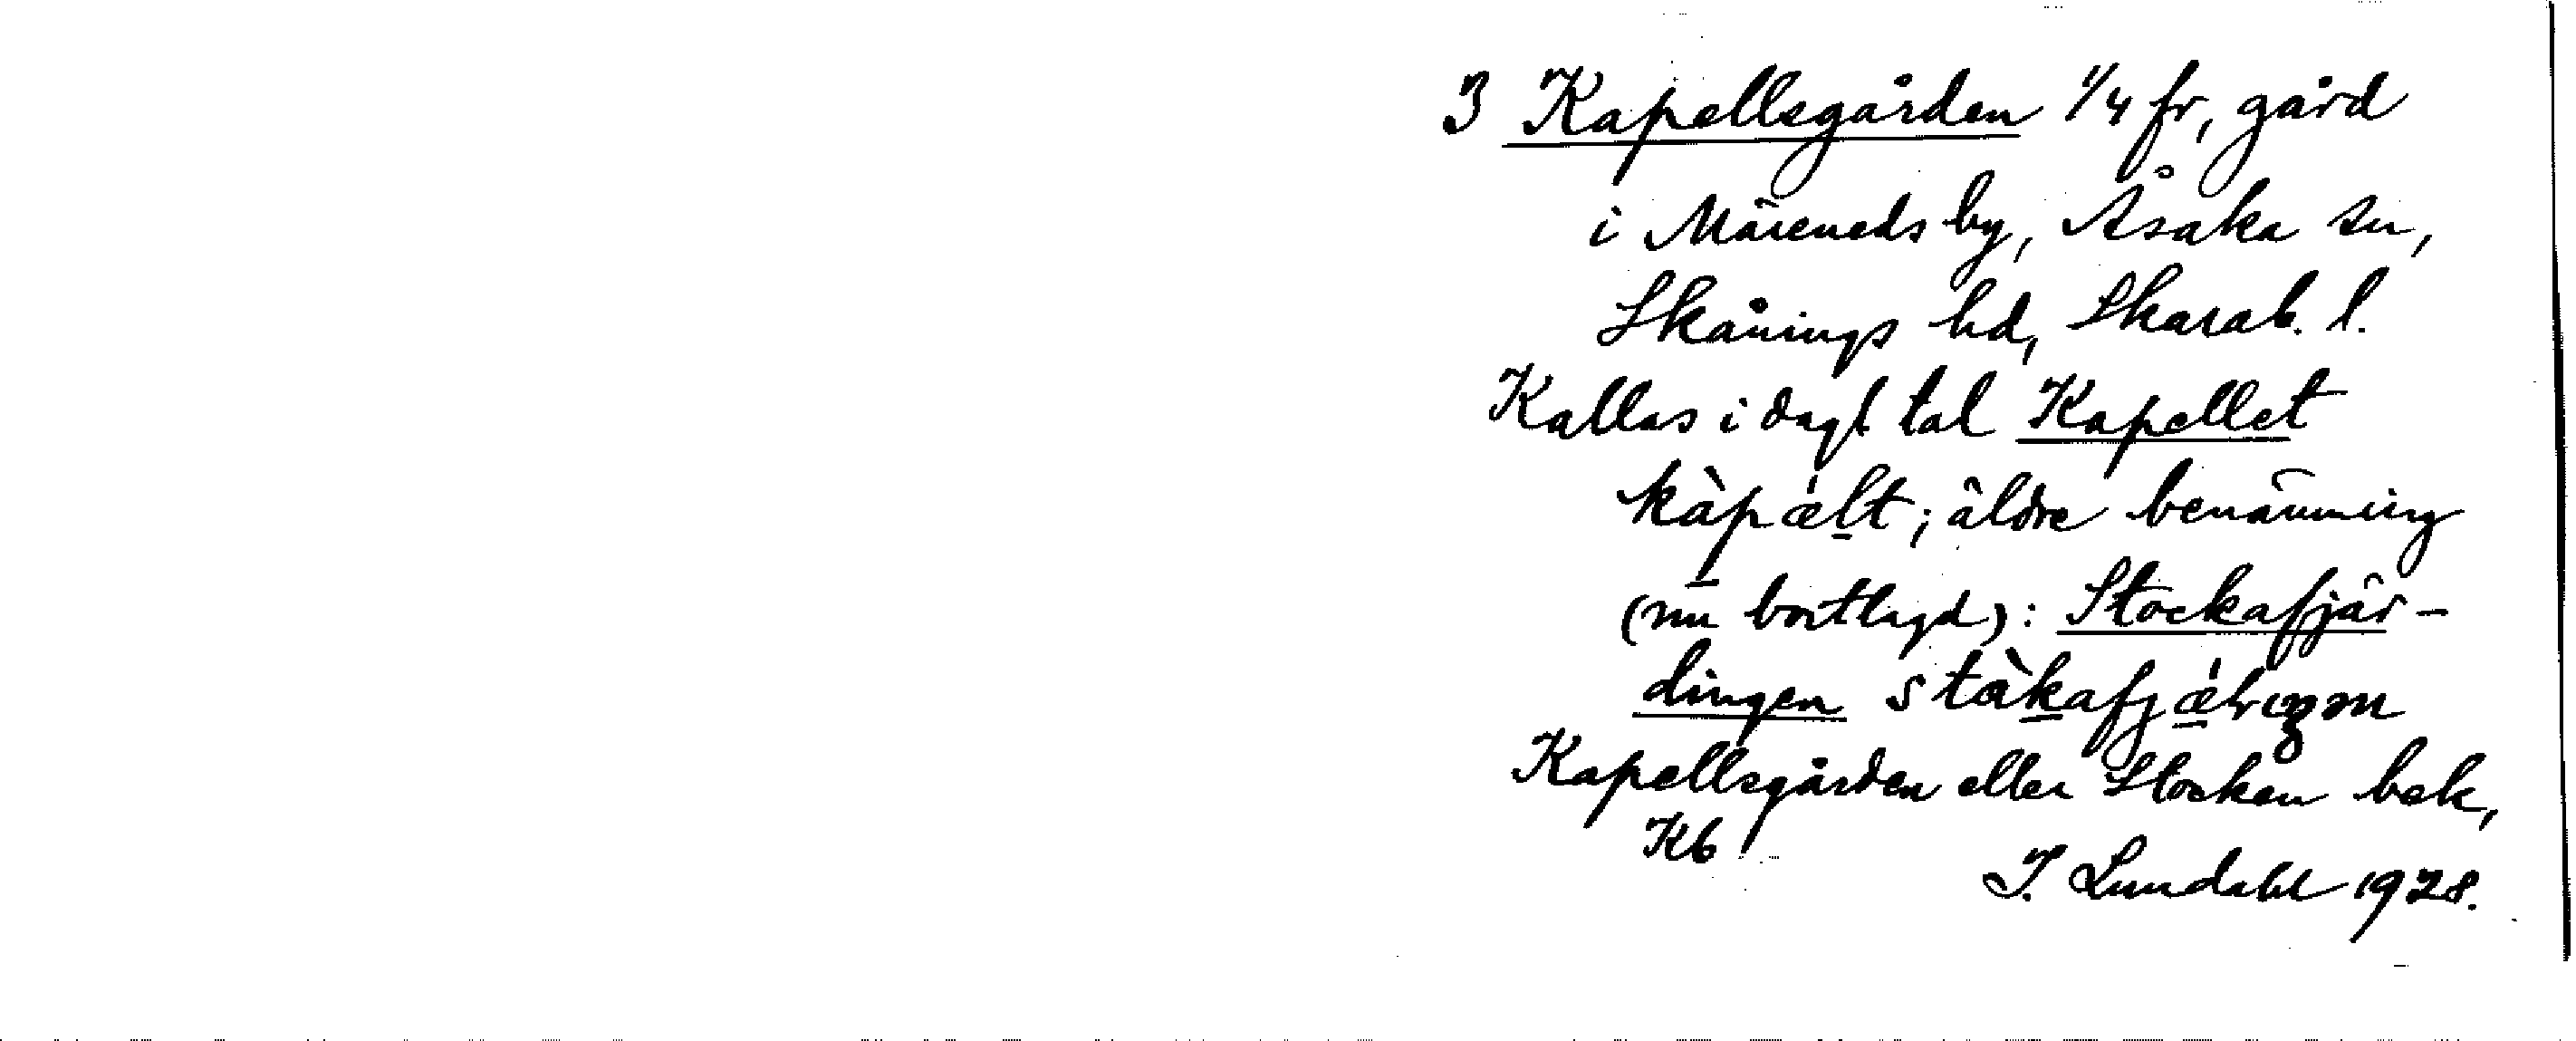 3 Kapellsgården 1/4 fr, gård
i Märeneds by, Åsaka sn,
Skånings hd, Skarab. l.
Kallas i dagl tal Kapellet
kàpǽlt; äldre benämning
(nu bortlagd): Stockafjär-
dingen
Kapellsgården eller Stocken bek,
Kb
I. Lundahl 1928.